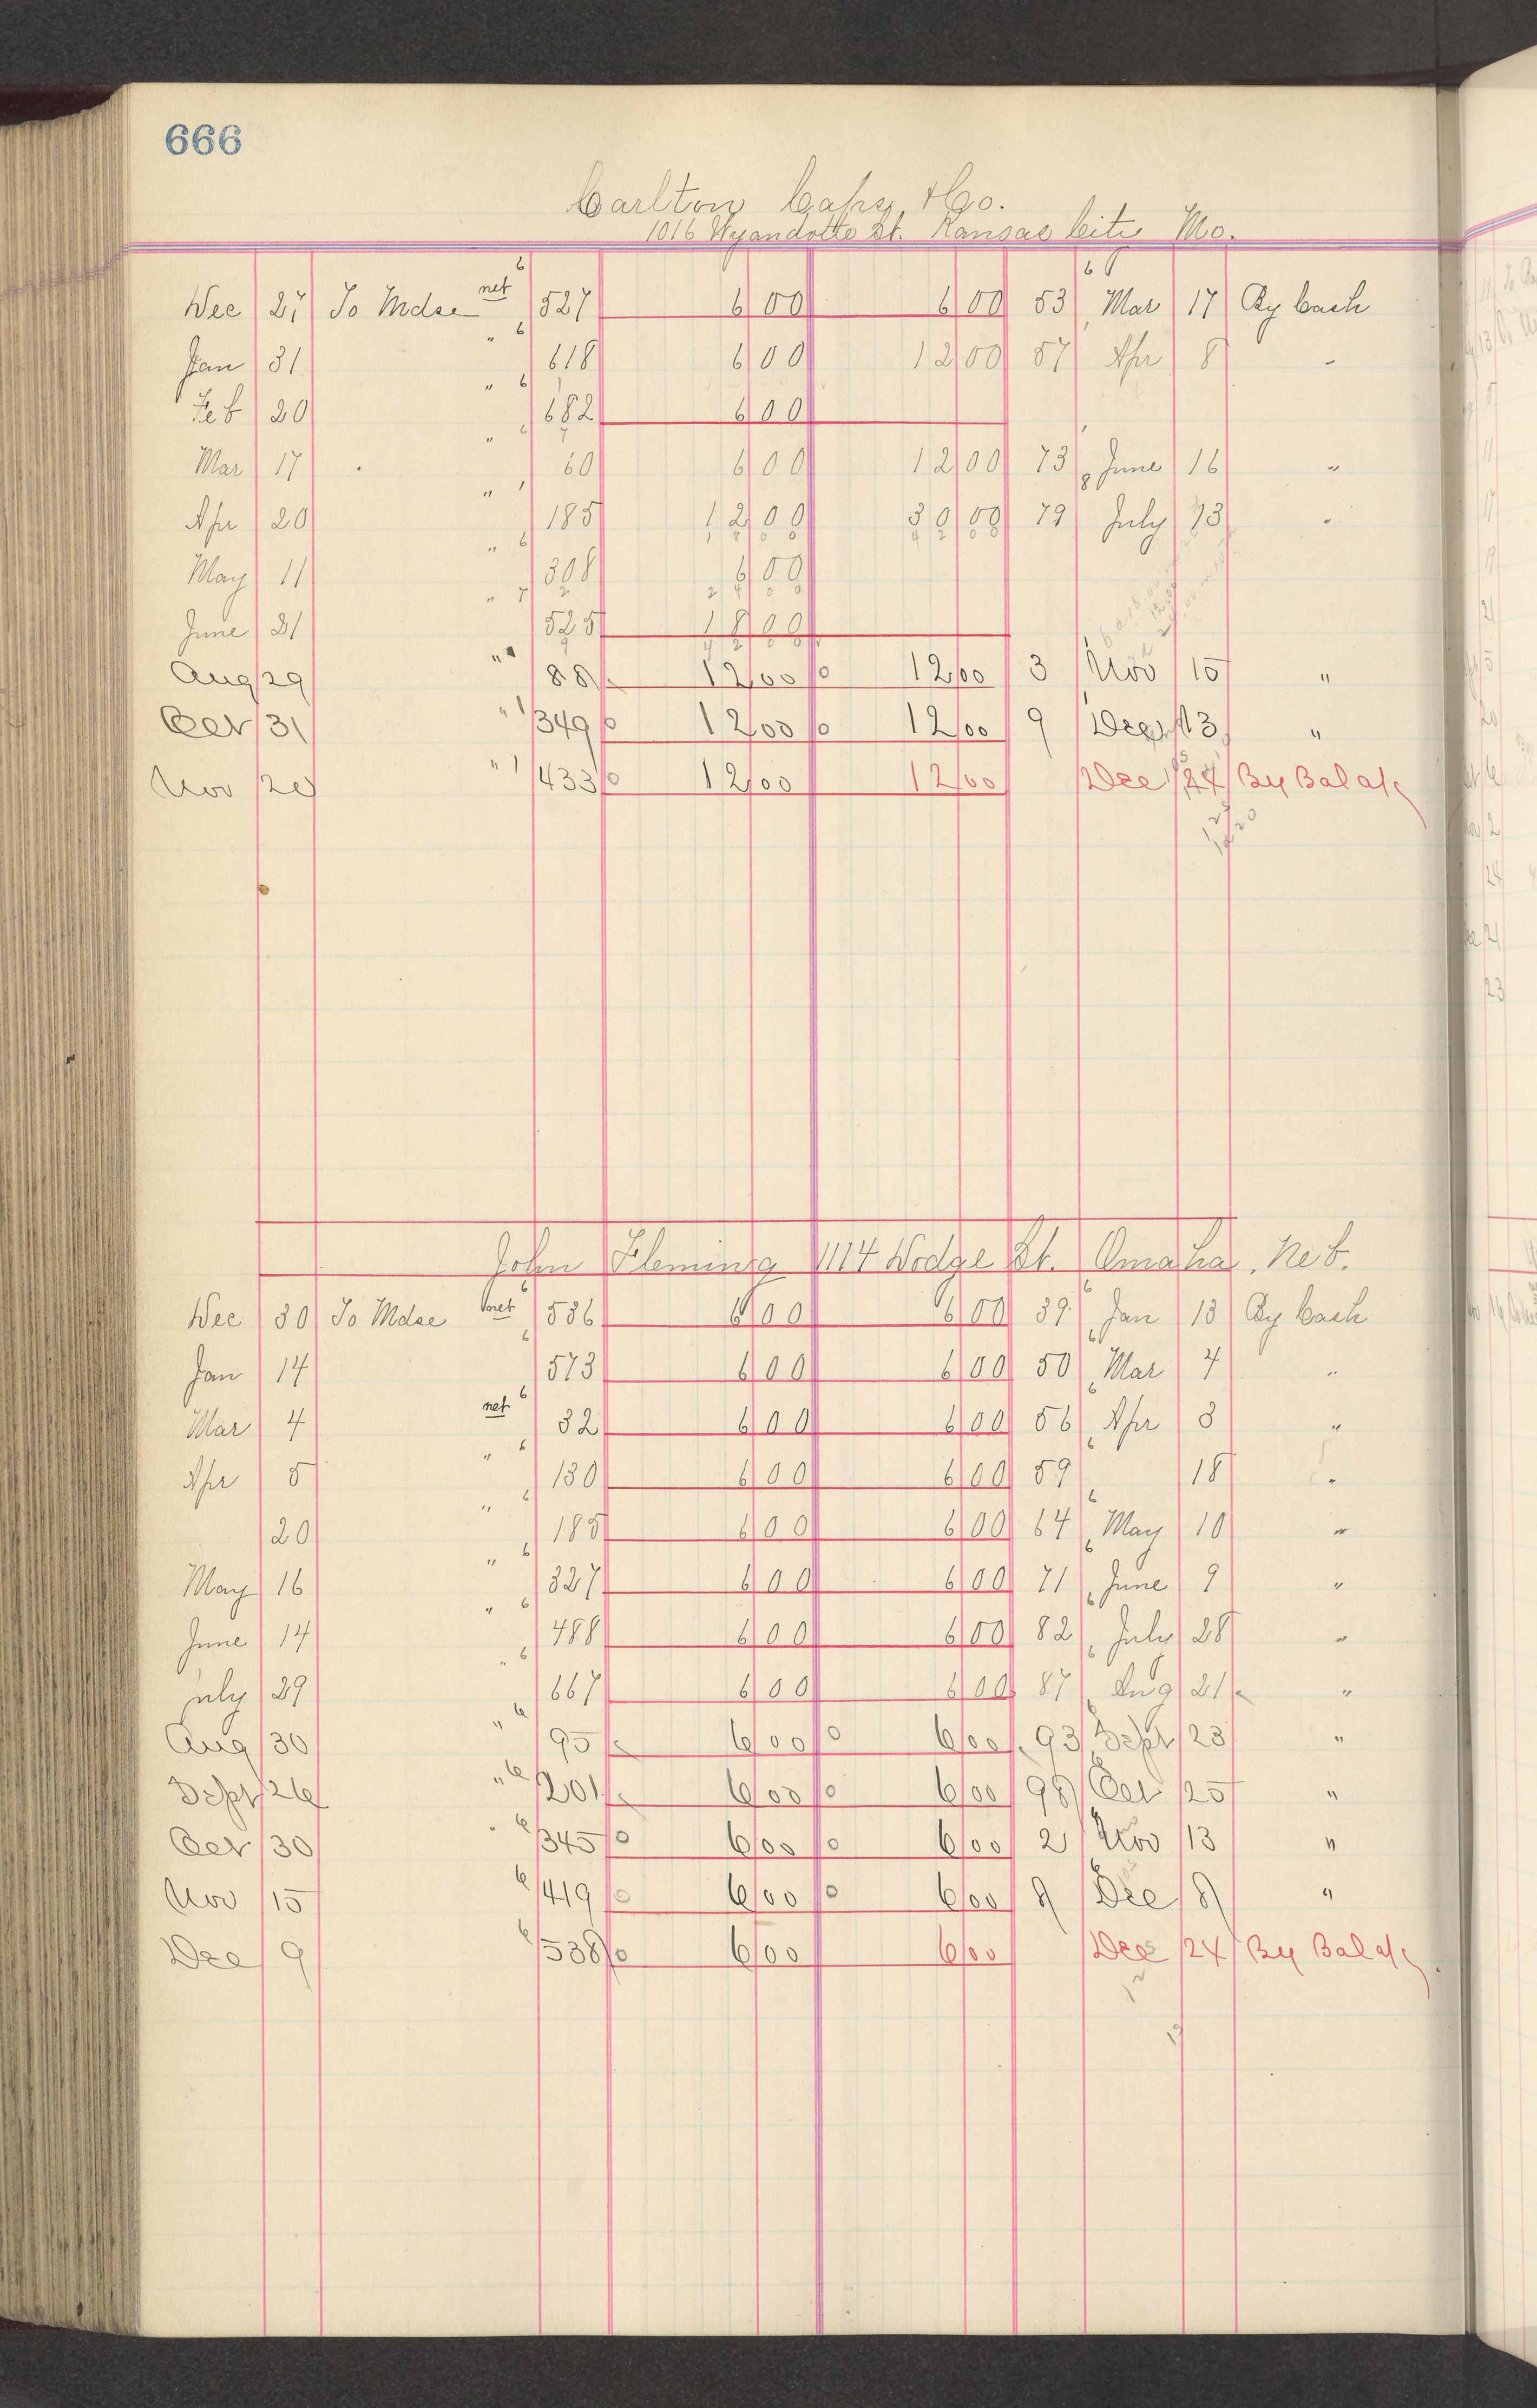 666
Carlton Caps & Co.
1016 Wyandotte St. Kansas City Mo.
Dec 27 To Mdse net 6 527 6 00 6 00 53 Mar 17 By Cash
Jan 31 " 6 618 6 00 12 00 57 Apr 8 "
Feb 20 " 6 682 6 00
Mar 17 " 60 6 00 12 00 73 June 16 "
Apr 20 " 185 12 00 30 00 79 July 13 "
May 11 " 6 308 6 00
June 21 " 525 18 00
Aug 29 " 88 12 00 12 00 3 Nov 15 "
Oct 31 " 349 12 00 12 00 9 Dec 13 "
Nov 20 " 433 12 00 12 00 Dec 24 By Bal a/c
John Fleming 1114 Dodge St. Omaha, Neb.
Dec 30 To Mdse net 536 6 00 6 00 39 Jan 13 By Cash
Jan 14 6 573 6 00 6 00 50 Mar 4 "
Mar 4 net 6 32 6 00 6 00 56 Apr 3 "
Apr 5 " 6 130 6 00 6 00 59 18 "
20 " 6 185 6 00 6 00 64 May 10 "
May 16 " 6 327 6 00 6 00 71 June 9 "
June 14 " 6 488 6 00 6 00 82 July 28 "
July 29 " 6 667 6 00 6 00 87 Aug 21 "
Aug 30 " 6 95 6 00 6 00 93 Sept 23 "
Sept 26 " 6 201 6 00 6 00 98 Oct 25 "
Oct 30 " 6 345 6 00 6 00 2 Nov 13 "
Nov 15 6 419 6 00 6 00 8 Dec 8 "
Dec 9 6 538 6 00 6 00 Dec 24 By Bal a/c